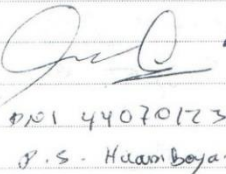 DNI 44070123
P.S. Huamboya